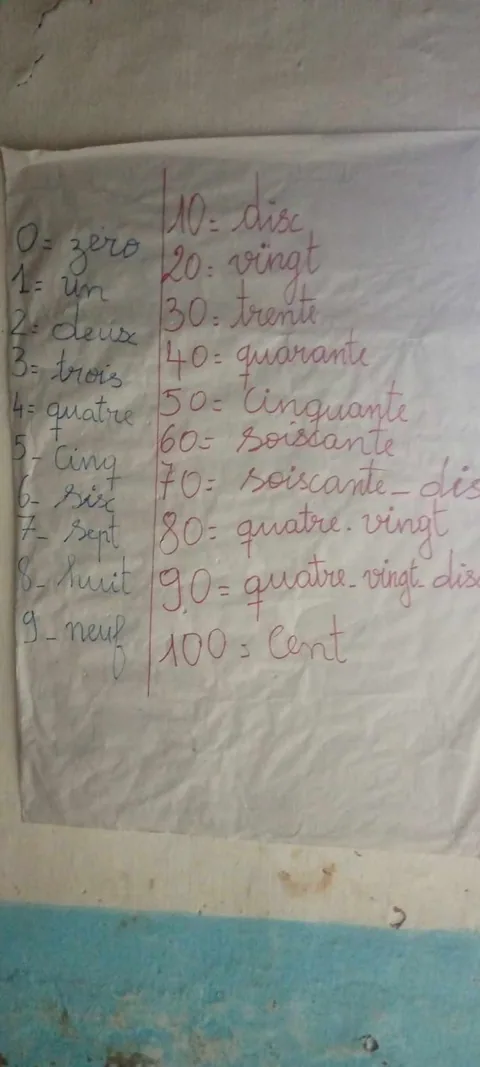 0= zéro
1= un
2= deux
3= trois
4= quatre
5_ Cinq
6_ six
7_ sept
8_ huit
9_ neuf
10= dix
20= vingt
30= trente
40= quarante
50= Cinquante
60= soixante
70= soixante_dix
80= quatre-vingt
90= quatre_vingt_dix
100= Cent